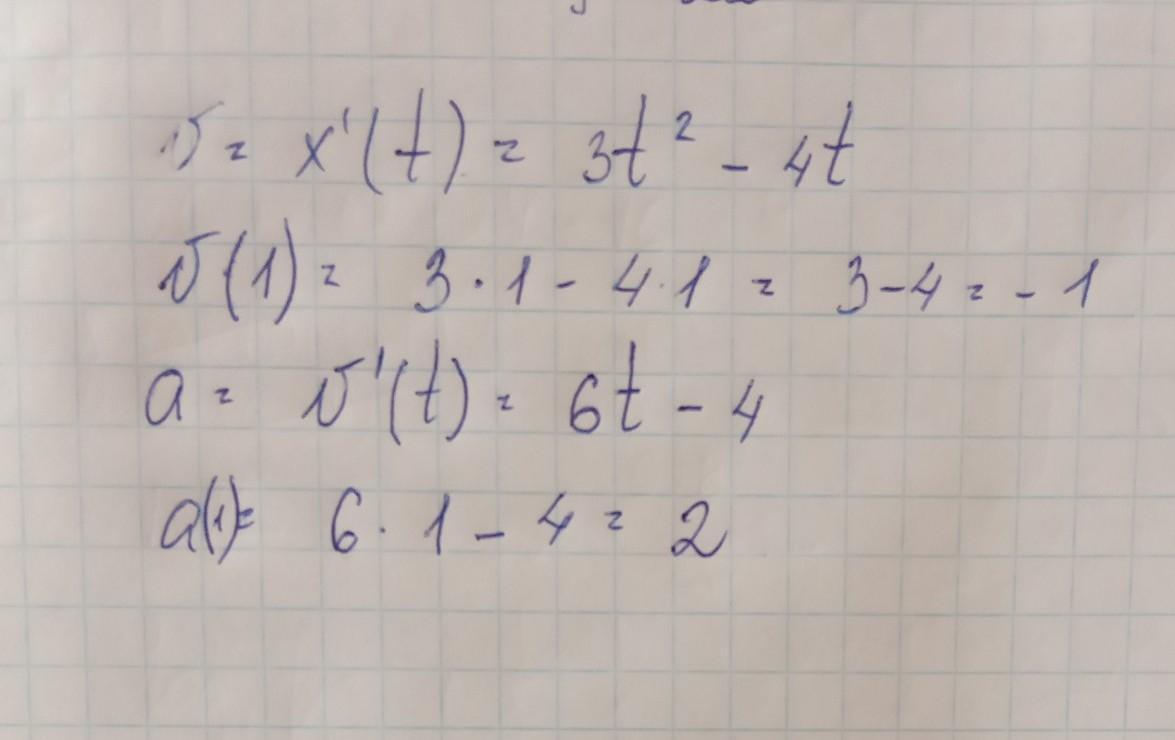 v = x'(t) = 3t² - 4t
v(1) = 3·1 - 4·1 = 3-4 = -1
a = v'(t) = 6t - 4
a(1) = 6·1 - 4 = 2